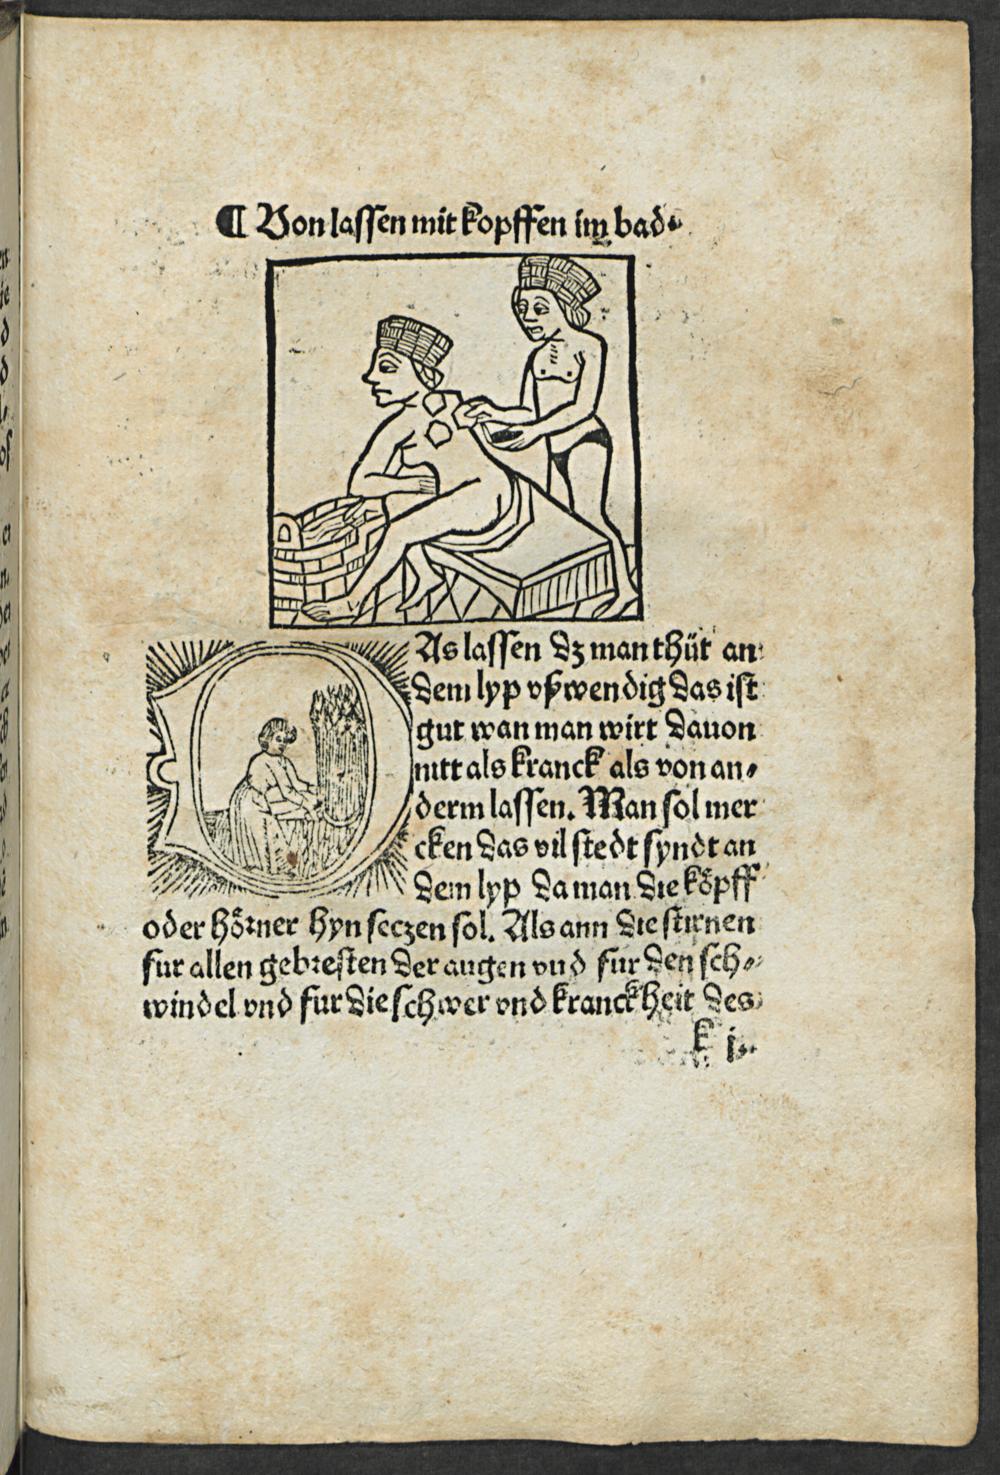 ¶ Von lassen mit kopffen im bad.
DAs lassen dz man thüt an
dem lyp vßwendig das ist
gut wan man wirt dauon
nitt als kranck als von an⸗
derm lassen. Man sol mer
cken das vil stedt syndt an
dem lyp da man die köpff
oder hörner hyn seczen sol. Als ann die stirnen
fur allen gebresten der augen vnd fur den sch⸗
windel vnd fur die schwer vnd kranckheit des
k j.